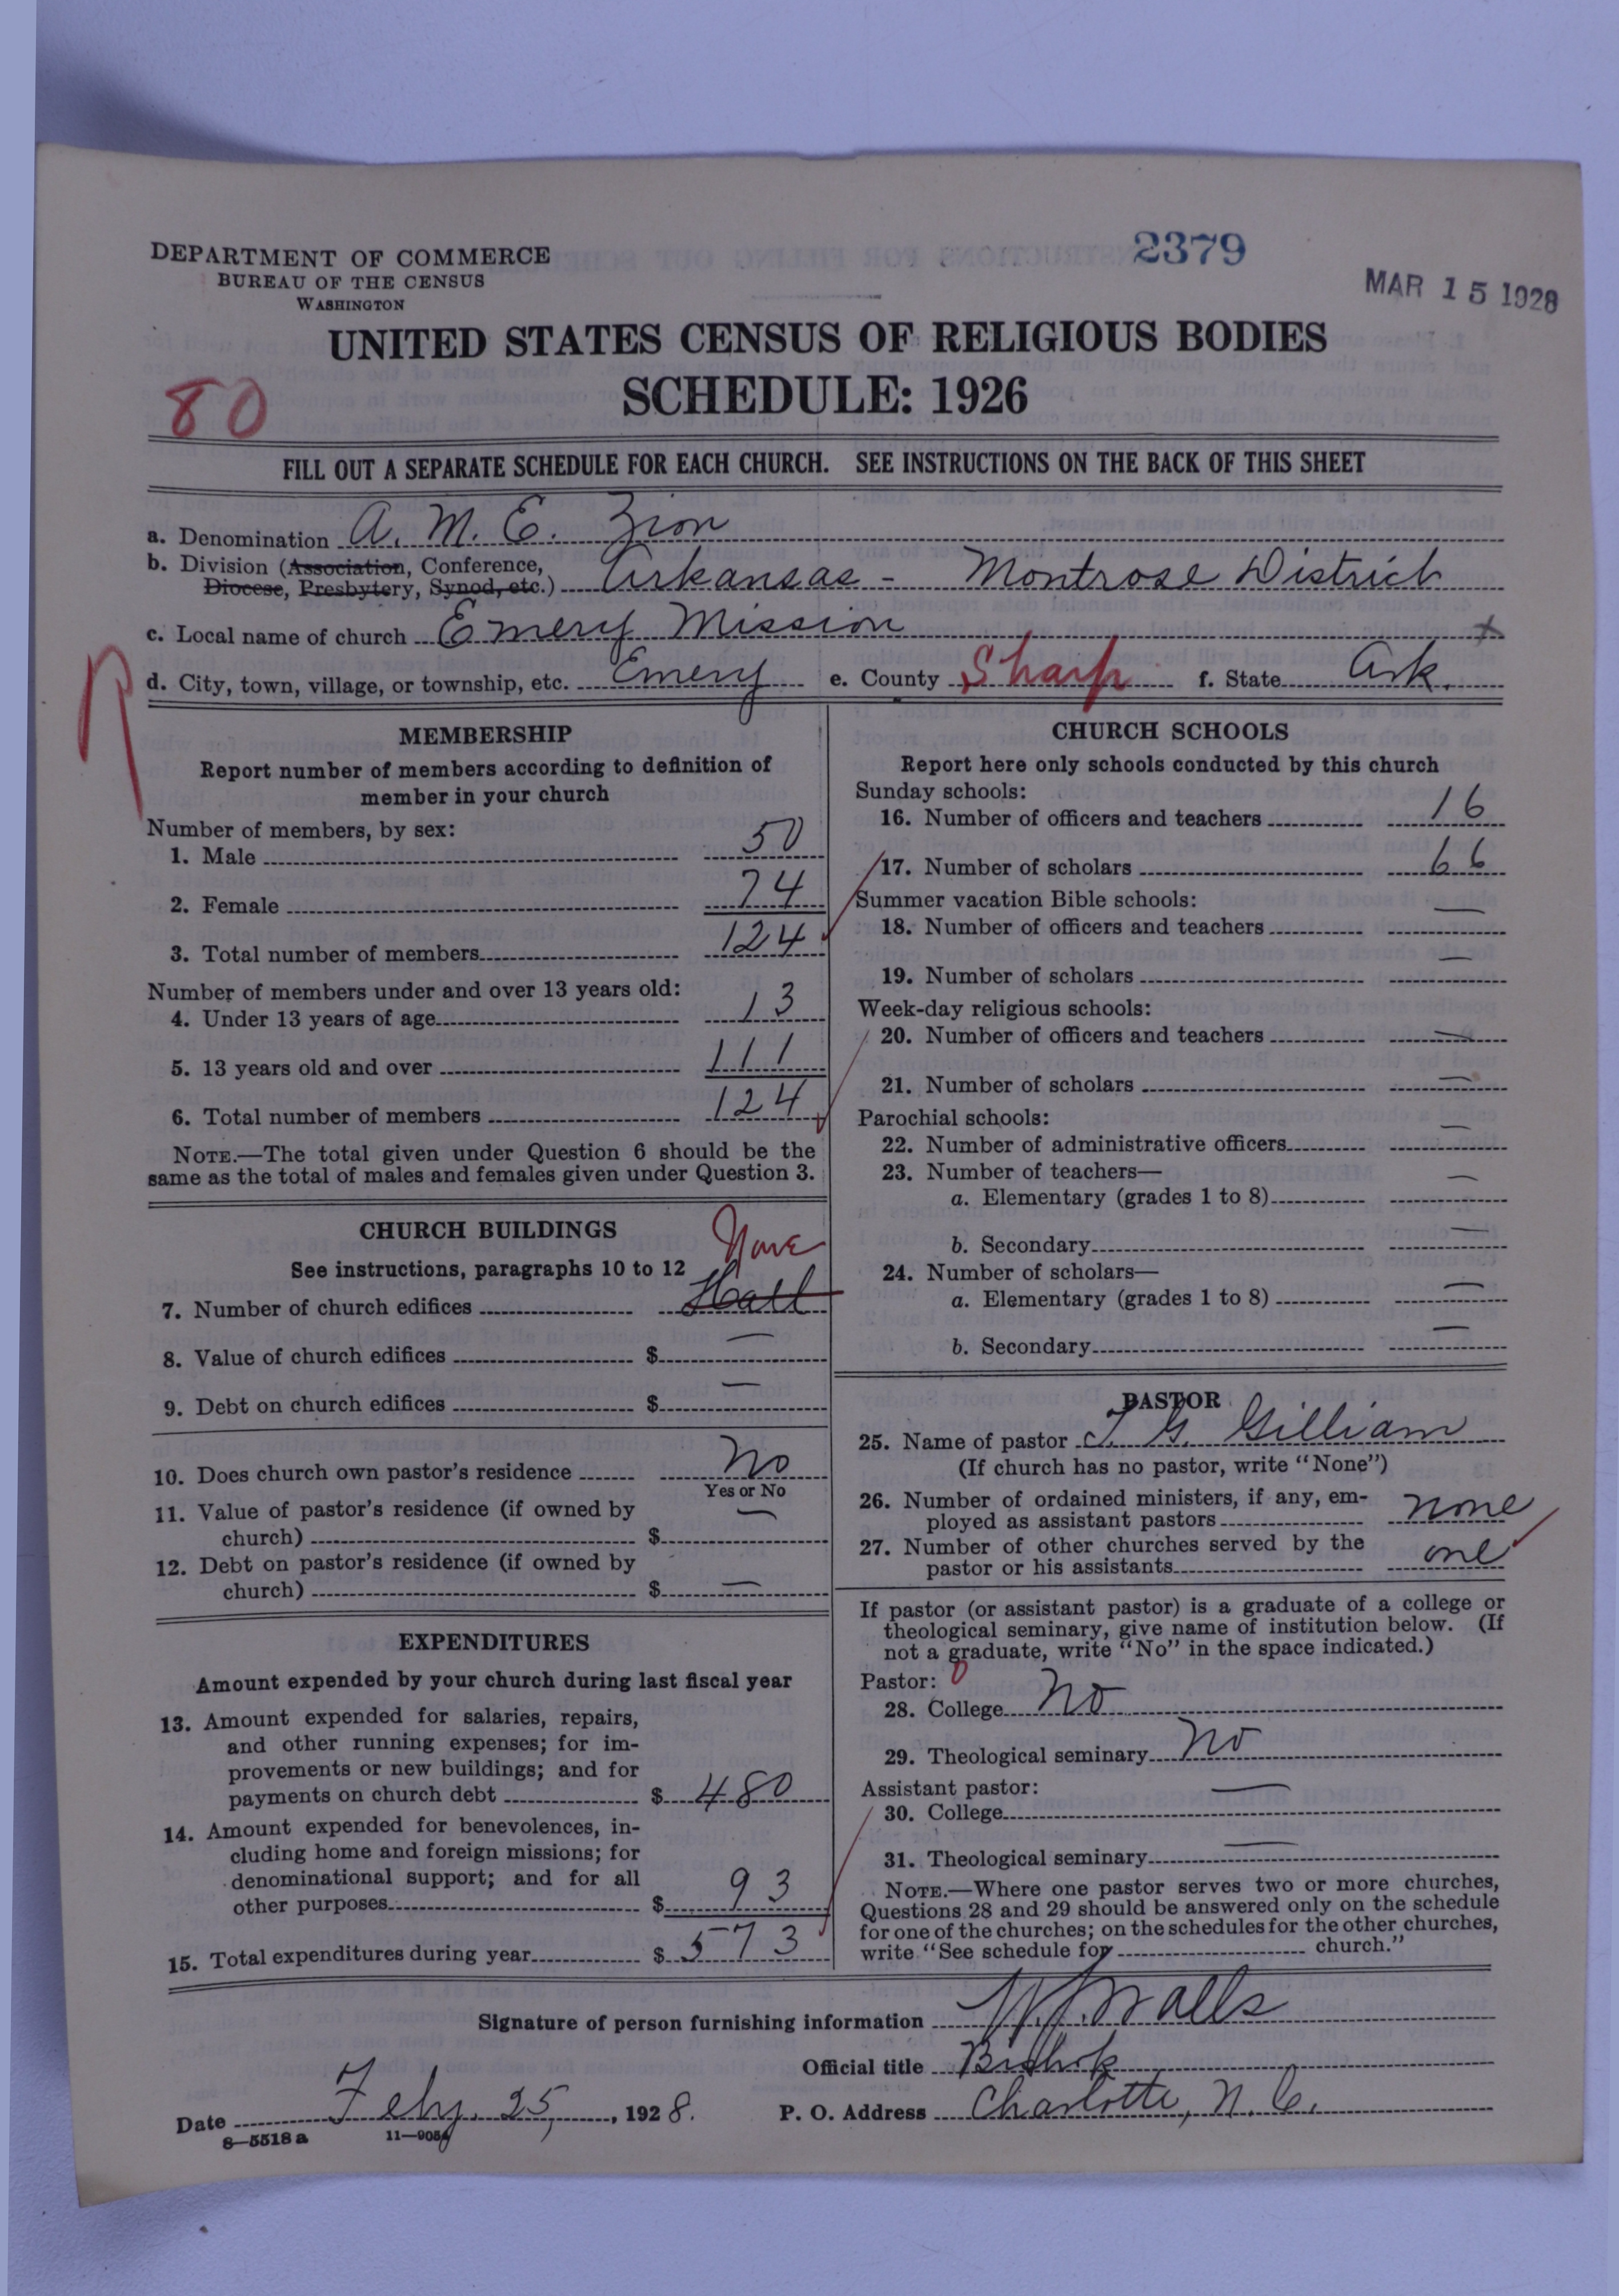 2379
MAR 15 1928
DEPARTMENT OF COMMERCE
BUREAU OF THE CENSUS
WASHINGTON
UNITED STATES CENSUS OF RELIGIOUS BODIES
SCHEDULE: 1926
80
FILL OUT A SEPARATE SCHEDULE FOR EACH CHURCH. SEE INSTRUCTIONS ON THE BACK OF THIS SHEET
a. Denomination A. M. E. Zion
b. Division (Association, Conference, Diocese, Presbytery, Synod, etc.) Arkansas - Montrose District
c. Local name of church Emery Mission x
d. City, town, village, or township, etc. Emery e. County Sharp f. State Ark.
MEMBERSHIP
Report number of members according to definition of
member in your church
Number of members, by sex:
1. Male 50
2. Female 74
3. Total number of members 124
Number of members under and over 13 years old:
4. Under 13 years of age 13
5. 13 years old and over 111
6. Total number of members 124
NOTE.—The total given under Question 6 should be the
same as the total of males and females given under Question 3.
CHURCH BUILDINGS
See instructions, paragraphs 10 to 12
None
7. Number of church edifices Hall
8. Value of church edifices $ —
9. Debt on church edifices $ —
10. Does church own pastor's residence No
Yes or No
11. Value of pastor's residence (if owned by
church) $ —
12. Debt on pastor's residence (if owned by
church) $ —
EXPENDITURES
Amount expended by your church during last fiscal year
13. Amount expended for salaries, repairs,
and other running expenses; for im-
provements or new buildings; and for
payments on church debt $ 480
14. Amount expended for benevolences, in-
cluding home and foreign missions; for
denominational support; and for all
other purposes $ 93
15. Total expenditures during year $ 573
CHURCH SCHOOLS
Report here only schools conducted by this church
Sunday schools:
16. Number of officers and teachers 16
17. Number of scholars 66
Summer vacation Bible schools:
18. Number of officers and teachers —
19. Number of scholars —
Week-day religious schools:
20. Number of officers and teachers —
21. Number of scholars —
Parochial schools:
22. Number of administrative officers —
23. Number of teachers—
a. Elementary (grades 1 to 8) —
b. Secondary —
24. Number of scholars—
a. Elementary (grades 1 to 8) —
b. Secondary —
PASTOR
25. Name of pastor G. Gilliam
(If church has no pastor, write "None")
26. Number of ordained ministers, if any, em-
ployed as assistant pastors none
27. Number of other churches served by the
pastor or his assistants one
If pastor (or assistant pastor) is a graduate of a college or
theological seminary, give name of institution below. (If
not a graduate, write "No" in the space indicated.)
Pastor: 0
28. College No
29. Theological seminary No
Assistant pastor:
30. College —
31. Theological seminary —
NOTE.—Where one pastor serves two or more churches,
Questions 28 and 29 should be answered only on the schedule
for one of the churches; on the schedules for the other churches,
write "See schedule for church."
Signature of person furnishing information W. J. Walls
Official title Bishop
Date Feby. 25, 1928. P. O. Address Charlotte, N. C.
8—5518 a 11—9054